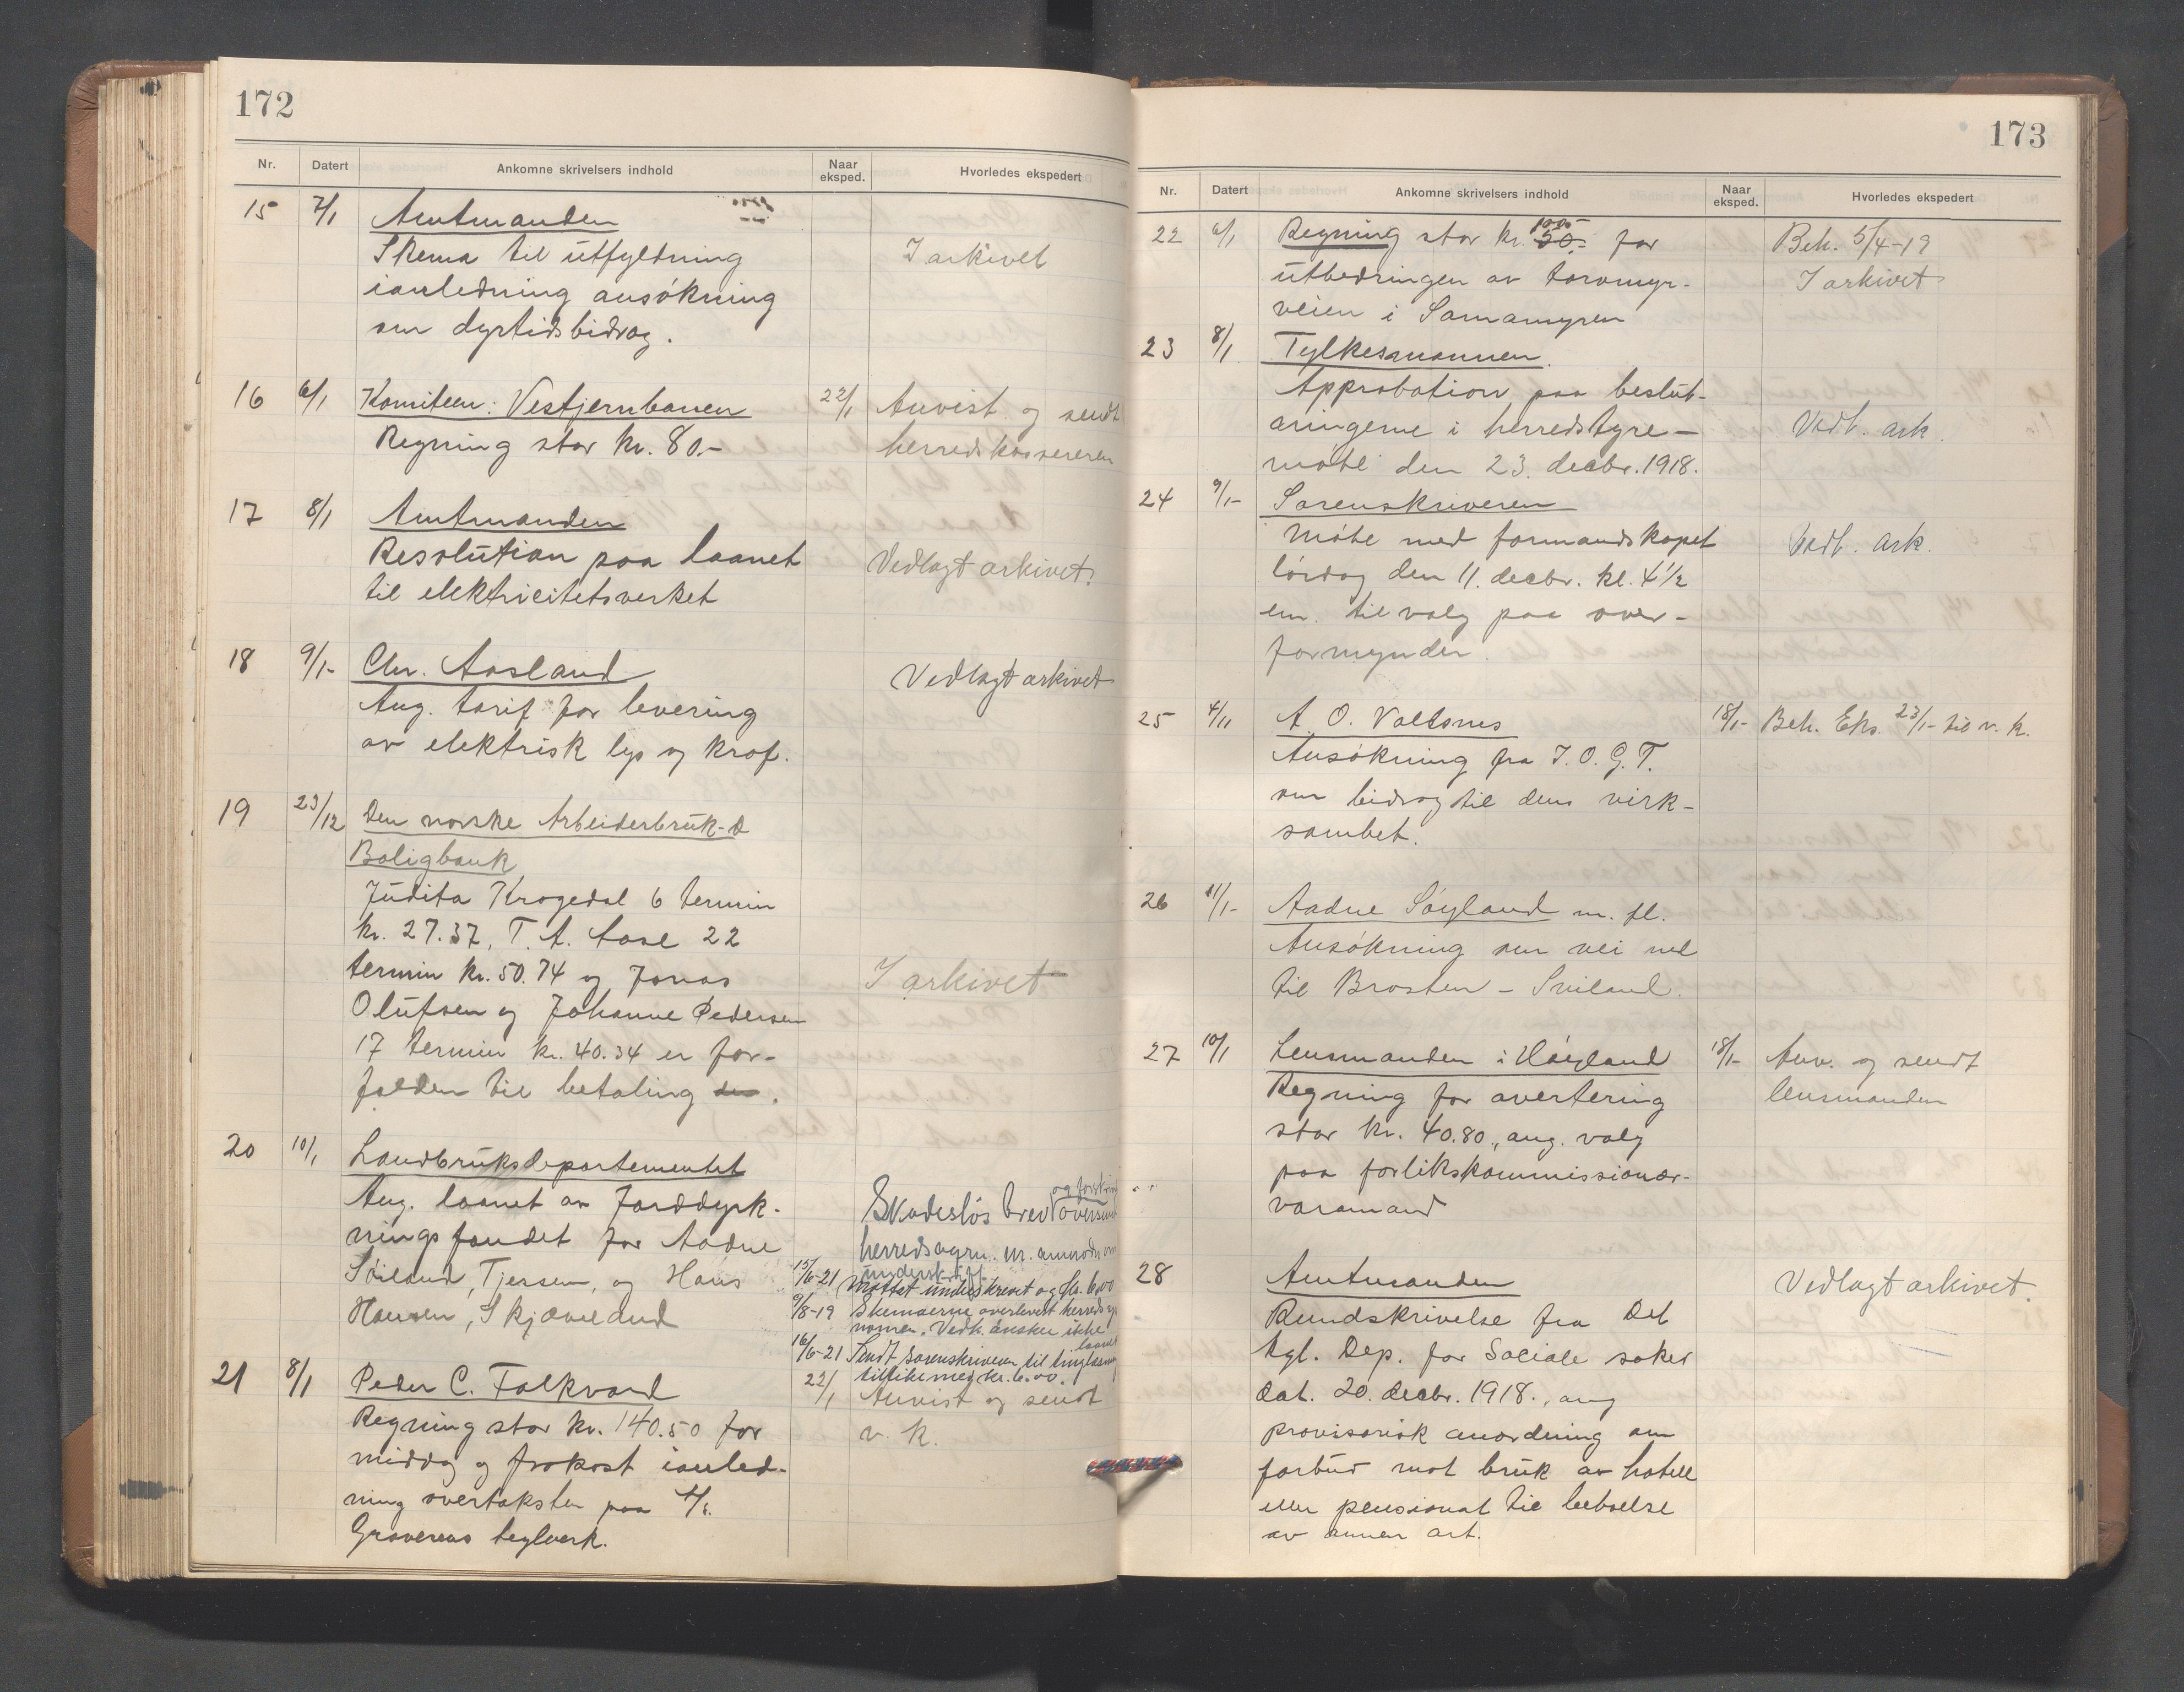 172
Nr. Datert Ankomne skrivelsers indhold Naar eksped. Hvorledes ekspedert
15 7/1 Amtmanden
Skema til utfyldning I arkivet
ianledning ansøkning
om dyrtidsbidrag.
16 6/1 Komiteen: Vestjernbanen 22/1 Anvist og sendt
Regning stor kr. 80.- herredskassereren
17 8/1 Amtmanden
Resolution paa laanet Vedlagt arkivet.
til elektricitetsverket
18 9/1- Chr. Aasland Vedlagt arkivet
Ang. tarif for levering
av elektrisk lys og kraf.
19 23/12 Den norske Arbeiderbruk- &
Boligbank
Judita Krogedal 6 termin
kr. 27.37, T. A. Aase 22
termin kr. 50.74 og Jonas I arkivet
Olufsen og Johanne Pedersen
17 termin kr. 40.34 er for-
falden til betaling.
20 10/1 Landbruksdepartementet
Ang. laanet av Jorddyrk- Skadesløs brev
ningsfondet for Aadne herredsagrn. m.
Søiland, Tjessem, og Hans 15/6-21 Mottat underskrevet og kr. 6,00
Hansen, Skjævelund 9/8-19 Skemaerne overlevert
Vedk. ønsker ikke laanet
16/6-21 Sendt sorenskriveren til tinglæsning
tillikemed kr. 6.00.
21 8/1 Peder C. Folkvord 22/1 Anvist og sendt
Regning stor kr. 140.50 for v. k.
middag og frokost ianled-
ning overtaksten paa
Graverens teglverk.
173
Nr. Datert Ankomne skrivelsers indhold Naar eksped. Hvorledes ekspedert
22 6/1 Regning stor kr. 50.- for Beh. 5/4-19
utbedringen av torvmyr- I arkivet
veien i Sømamyren
23 8/1 Fylkesmannen.
Approbation paa beslut-
ningerne i herredstyre- Vedl. ark.
møte den 23. decbr. 1918.
24 9/1- Sorenskriveren
Møte med formandskapet Vedl. ark.
lørdag den 11. decbr. kl. 4 1/2
em. til valg paa over-
formynder.
25 4/11 A. O. Valtsnes 18/1- Beh. Eks. 23/1- til v. k.
Ansøkning fra I. O. G. T.
om bidrag til dens virk-
somhet.
26 11/1- Aadne Søyland m. fl.
Ansøkning om vei ned
til Brosten - Sviland.
27 10/1 Lensmanden i Høyland 18/1- Anv. og sendt
Regning for avertering lensmanden
stor kr. 40.80., ang. valg
paa forlikskommissionær-
varamand
28 Amtmanden Vedlagt arkivet.
Rundskrivelse fra Det
kgl. Dep. for Sociale saker
dat. 20. decbr. 1918., ang
provisorisk anordning om
forbud mot bruk av hotell
eller pensionat til beboelse
av annen art.